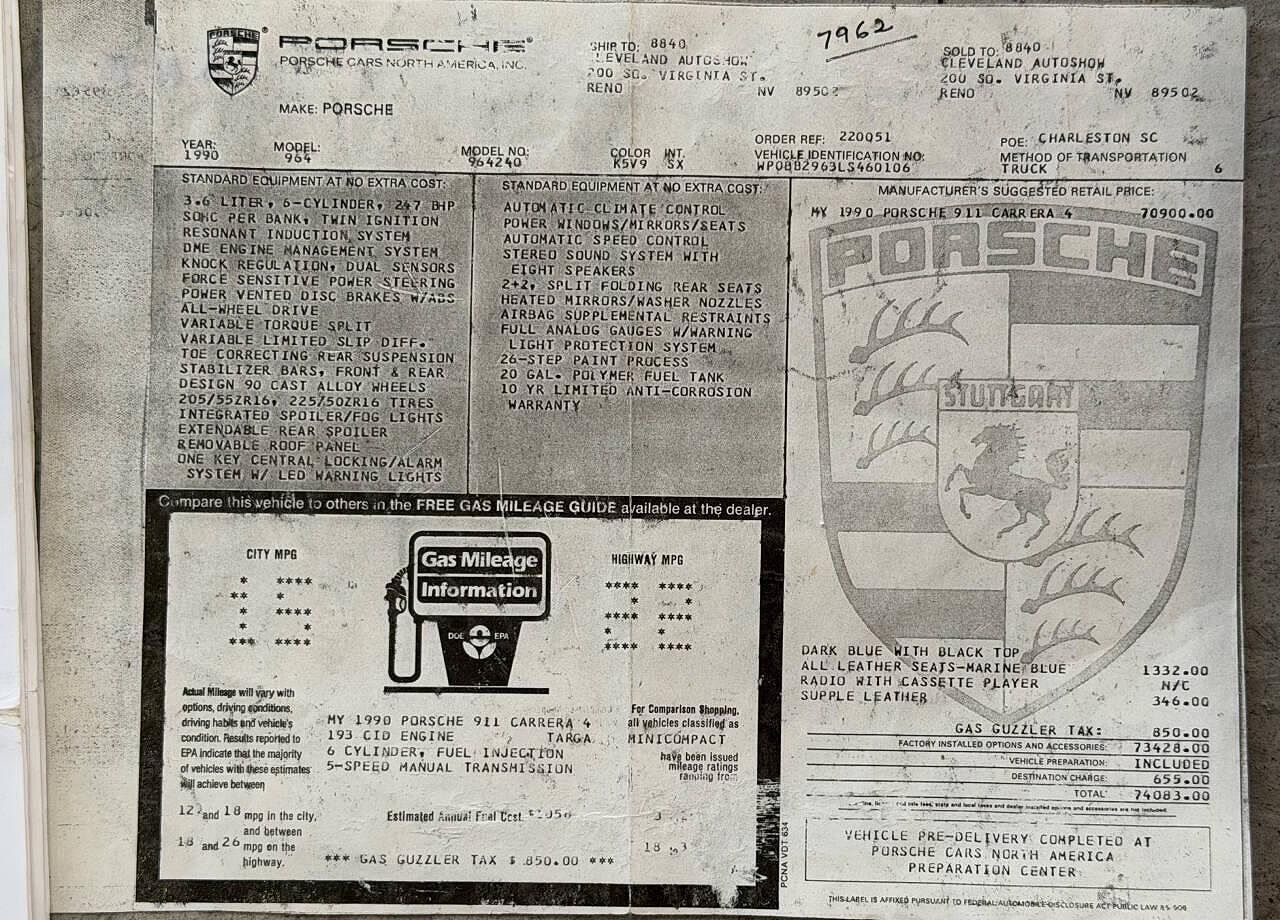 7962
PORSCHE
PORSCHE®
PORSCHE CARS NORTH AMERICA, INC.
MAKE: PORSCHE
SHIP TO: 8840
CLEVELAND AUTOSHOW
200 SO. VIRGINIA ST.
RENO NV 89502
SOLD TO: 8840
CLEVELAND AUTOSHOW
200 SO. VIRGINIA ST.
RENO NV 89502
YEAR: MODEL: MODEL NO: COLOR INT.
1990 964 964240 K5V9 SX
ORDER REF: 220051
VEHICLE IDENTIFICATION NO:
WP0BB2963LS460106
POE: CHARLESTON SC
METHOD OF TRANSPORTATION
TRUCK 6
STANDARD EQUIPMENT AT NO EXTRA COST:
3.6 LITER, 6-CYLINDER, 247 BHP
SOHC PER BANK, TWIN IGNITION
RESONANT INDUCTION SYSTEM
DME ENGINE MANAGEMENT SYSTEM
KNOCK REGULATION, DUAL SENSORS
FORCE SENSITIVE POWER STEERING
POWER VENTED DISC BRAKES W/ABS
ALL-WHEEL DRIVE
VARIABLE TORQUE SPLIT
VARIABLE LIMITED SLIP DIFF.
TOE CORRECTING REAR SUSPENSION
STABILIZER BARS, FRONT & REAR
DESIGN 90 CAST ALLOY WHEELS
205/55ZR16, 225/50ZR16 TIRES
INTEGRATED SPOILER/FOG LIGHTS
EXTENDABLE REAR SPOILER
REMOVABLE ROOF PANEL
ONE KEY CENTRAL LOCKING/ALARM
SYSTEM W/ LED WARNING LIGHTS
STANDARD EQUIPMENT AT NO EXTRA COST:
AUTOMATIC CLIMATE CONTROL
POWER WINDOWS/MIRRORS/SEATS
AUTOMATIC SPEED CONTROL
STEREO SOUND SYSTEM WITH
EIGHT SPEAKERS
2+2, SPLIT FOLDING REAR SEATS
HEATED MIRRORS/WASHER NOZZLES
AIRBAG SUPPLEMENTAL RESTRAINTS
FULL ANALOG GAUGES W/WARNING
LIGHT PROTECTION SYSTEM
26-STEP PAINT PROCESS
20 GAL. POLYMER FUEL TANK
10 YR LIMITED ANTI-CORROSION
WARRANTY
MANUFACTURER'S SUGGESTED RETAIL PRICE:
MY 1990 PORSCHE 911 CARRERA 4 70900.00
PORSCHE
STUTTGART
DARK BLUE WITH BLACK TOP
ALL LEATHER SEATS-MARINE BLUE 1332.00
RADIO WITH CASSETTE PLAYER N/C
SUPPLE LEATHER 346.00
GAS GUZZLER TAX: 850.00
FACTORY INSTALLED OPTIONS AND ACCESSORIES: 73428.00
VEHICLE PREPARATION: INCLUDED
DESTINATION CHARGE: 655.00
TOTAL: 74083.00
title fees, state and local taxes and dealer installed options and accessories are not included.
VEHICLE PRE-DELIVERY COMPLETED AT
PORSCHE CARS NORTH AMERICA
PREPARATION CENTER
THIS LABEL IS AFFIXED PURSUANT TO FEDERAL AUTOMOBILE DISCLOSURE ACT PUBLIC LAW 85-506
Compare this vehicle to others in the FREE GAS MILEAGE GUIDE available at the dealer.
CITY MPG
15
Gas Mileage
Information
DOE EPA
HIGHWAY MPG
22
Actual Mileage will vary with
options, driving conditions,
driving habits and vehicle's
condition. Results reported to
EPA indicate that the majority
of vehicles with these estimates
will achieve between
12 and 18 mpg in the city,
and between
18 and 26 mpg on the
highway.
MY 1990 PORSCHE 911 CARRERA 4
193 CID ENGINE TARGA
6 CYLINDER, FUEL INJECTION
5-SPEED MANUAL TRANSMISSION
Estimated Annual Fuel Cost:
*** GAS GUZZLER TAX $ 850.00 ***
For Comparison Shopping,
all vehicles classified as
MINICOMPACT
have been issued
mileage ratings
ranging from
18
PCNA VDT 634